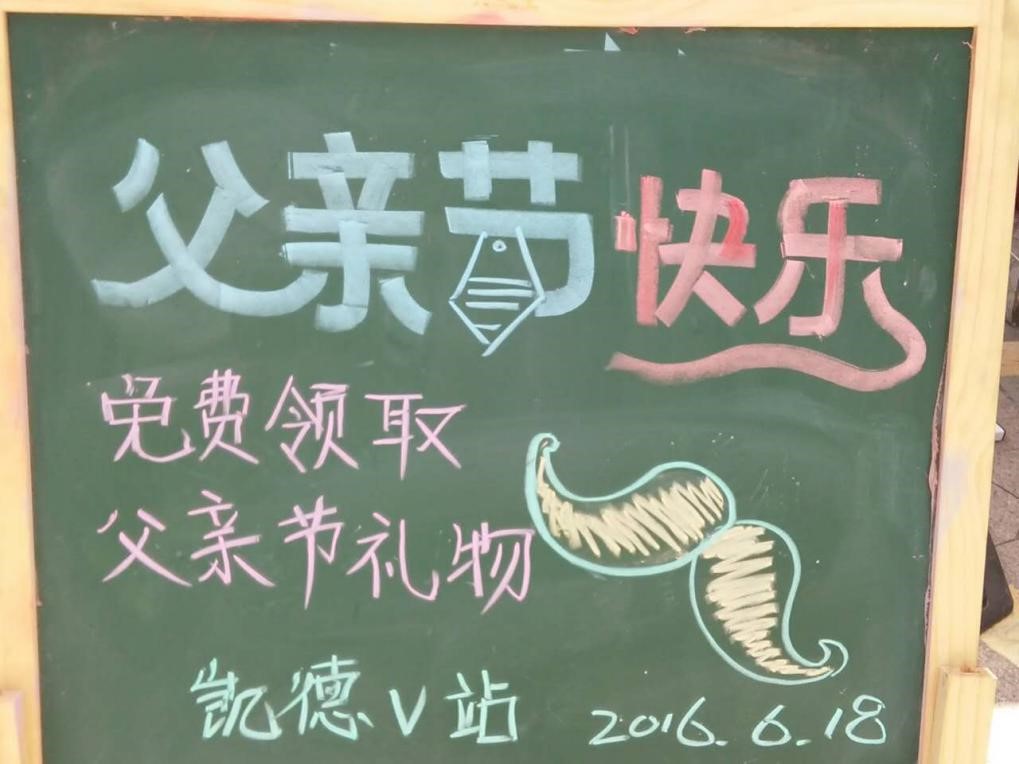 父亲节快乐
免费领取
父亲节礼物
凯德V站 2016.6.18